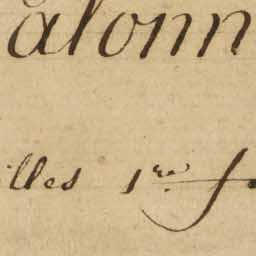 alonn
illes 1re f